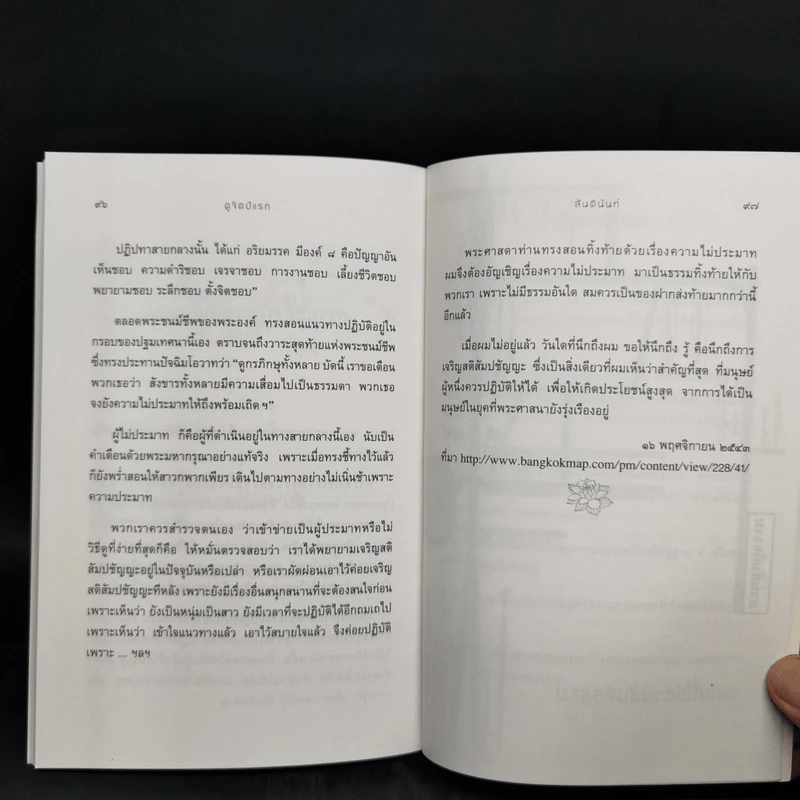 ๙๖ ดูจิตปีแรก
ปฏิปทาสายกลางนั้น ได้แก่ อริยมรรค มีองค์ ๘ คือปัญญาอัน
เห็นชอบ ความดำริชอบ เจรจาชอบ การงานชอบ เลี้ยงชีวิตชอบ
พยายามชอบ ระลึกชอบ ตั้งจิตชอบ”
ตลอดพระชนม์ชีพของพระองค์ ทรงสอนแนวทางปฏิบัติอยู่ใน
กรอบของปฐมเทศนานี้เอง ตราบจนถึงวาระสุดท้ายแห่งพระชนม์ชีพ
ซึ่งทรงประทานปัจฉิมโอวาทว่า “ดูกรภิกษุทั้งหลาย บัดนี้ เราขอเตือน
พวกเธอว่า สังขารทั้งหลายมีความเสื่อมไปเป็นธรรมดา พวกเธอ
จงยังความไม่ประมาทให้ถึงพร้อมเถิด ฯ”
ผู้ไม่ประมาท ก็คือผู้ที่ดำเนินอยู่ในทางสายกลางนี้เอง นับเป็น
คำเตือนด้วยพระมหากรุณาอย่างแท้จริง เพราะเมื่อทรงชี้ทางไว้แล้ว
ก็ยังพร่ำสอนให้สาวกพากเพียร เดินไปตามทางอย่างไม่เนิ่นช้าเพราะ
ความประมาท
พวกเราควรสำรวจตนเอง ว่าเข้าข่ายเป็นผู้ประมาทหรือไม่
วิธีดูที่ง่ายที่สุดก็คือ ให้หมั่นตรวจสอบว่า เราได้พยายามเจริญสติ
สัมปชัญญะอยู่ในปัจจุบันหรือเปล่า หรือเราผัดผ่อนเอาไว้ค่อยเจริญ
สติสัมปชัญญะทีหลัง เพราะยังมีเรื่องอื่นสนุกสนานที่จะต้องสนใจก่อน
เพราะเห็นว่า ยังเป็นหนุ่มเป็นสาว ยังมีเวลาที่จะปฏิบัติได้อีกถมเถไป
เพราะเห็นว่า เข้าใจแนวทางแล้ว เอาไว้สบายใจแล้ว จึงค่อยปฏิบัติ
เพราะ ... ฯลฯ
สันตินันท์ ๙๗
พระศาสดาท่านทรงสอนทิ้งท้ายด้วยเรื่องความไม่ประมาท
ผมจึงต้องอัญเชิญเรื่องความไม่ประมาท มาเป็นธรรมทิ้งท้ายให้กับ
พวกเรา เพราะไม่มีธรรมอันใด สมควรเป็นของฝากส่งท้ายมากกว่านี้
อีกแล้ว
เมื่อผมไม่อยู่แล้ว วันใดที่นึกถึงผม ขอให้นึกถึง รู้ คือนึกถึงการ
เจริญสติสัมปชัญญะ ซึ่งเป็นสิ่งเดียวที่ผมเห็นว่าสำคัญที่สุด ที่มนุษย์
ผู้หนึ่งควรปฏิบัติให้ได้ เพื่อให้เกิดประโยชน์สูงสุด จากการได้เป็น
มนุษย์ในยุคที่พระศาสนายังรุ่งเรืองอยู่
๑๖ พฤศจิกายน ๒๕๔๓
ที่มา http://www.bangkokmap.com/pm/content/view/228/41/